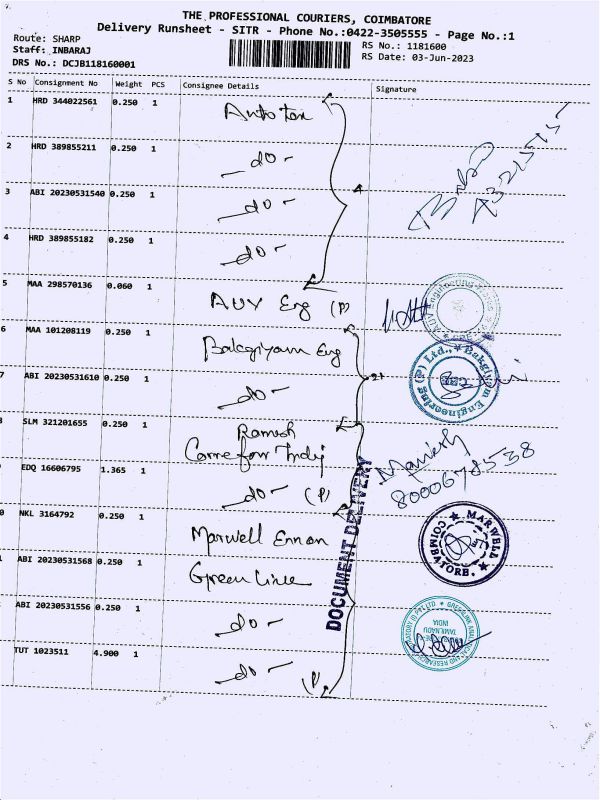 THE PROFESSIONAL COURIERS, COIMBATORE
Delivery Runsheet - SITR - Phone No.:0422-3505555 - Page No.:1
Route: SHARP
RS No.: 1181600
Staff: INBARAJ
RS Date: 03-Jun-2023
DRS No.: DCJB118160001
S No Consignment No Weight PCS Consignee Details Signature
1 HRD 344022561 0.250 1 Auto tax
2 HRD 389855211 0.250 1 - do -
3 ABI 20230531540 0.250 1 - do -
4
4 HRD 389855182 0.250 1 - do -
5 MAA 298570136 0.060 1 AUV Eng (P)
6 MAA 101208119 0.250 1 Bakgiyam Eng
7 ABI 20230531610 0.250 1 - do -
SLM 321201655 0.250 1 Ramesh
Carrefour Indij
Manikesh
80006 78538
EDQ 16606795 1.365 1 - do - (P)
NKL 3164792 0.250 1 Marwell Ennan
MARWELL
COIMBATORE.
ABI 20230531568 0.250 1 Green Line
ABI 20230531556 0.250 1 - do -
TUT 1023511 4.900 1 - do - (P)
DOCUMENT DELIVERY
Bakgiyam Engineering (P) Ltd.,
TAMILNADU
INDIA